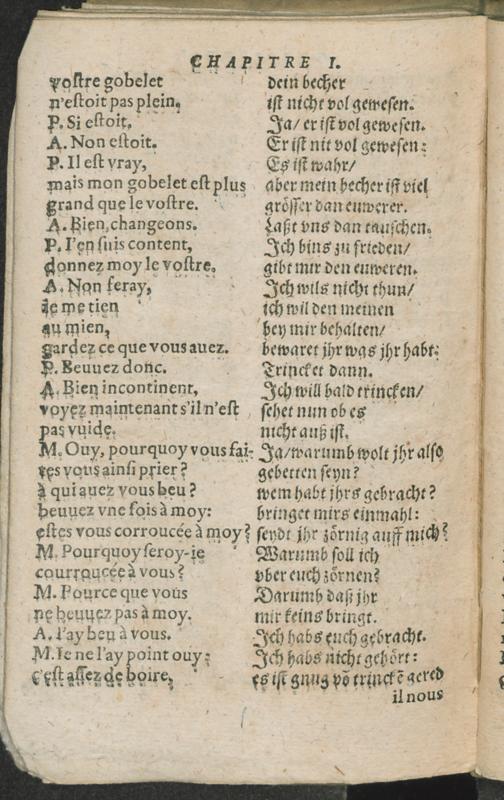 CHAPITRE I.
vostre gobelet
n'estoit pas plein,
P. Si estoit,
A. Non estoit.
P. Il est vray,
mais mon gobelet est plus
grand que le vostre.
A. Bien, changeons.
P. I'en suis content,
donnez moy le vostre,
A. Non feray,
ie me tien
au mien,
gardez ce que vous auez.
P. Beuuez donc.
A. Bien incontinent,
voyez maintenant s'il n'est
pas vuide.
M. Ouy, pourquoy vous fai-
tes vous ainsi prier?
à qui auez vous beu?
beuuez vne fois à moy:
estes vous corroucée à moy?
M. Pourquoy feroy-ie
courroucée à vous?
M. Pource que vous
ne beuuez pas à moy.
A. I'ay beu à vous.
M. Ie ne l'ay point ouy:
c'est assez de boire,
dein becher
ist nicht vol gewesen.
Ja/ er ist vol gewesen.
Er ist nit vol gewesen:
Es ist wahr/
aber mein becher ist viel
grösser dan euwerer.
Laßt vns dan tauschen.
Ich bins zu frieden/
gibt mir den euweren.
Ich wils nicht thun/
ich wil den meinen
bey mir behalten/
bewaret jhr was jhr habt:
Trincket dann.
Ich will bald trincken/
sehet nun ob es
nicht auß ist.
Ja/warumb wolt jhr also
gebetten seyn?
wem habt jhrs gebracht?
bringet mirs einmahl:
seydt jhr zörnig auff mich?
Warumb soll ich
vber euch zörnen?
Darumb daß jhr
mir keins bringt.
Ich habs euch gebracht.
Ich habs nicht gehört:
es ist gnug võ trinckẽ gered
il nous